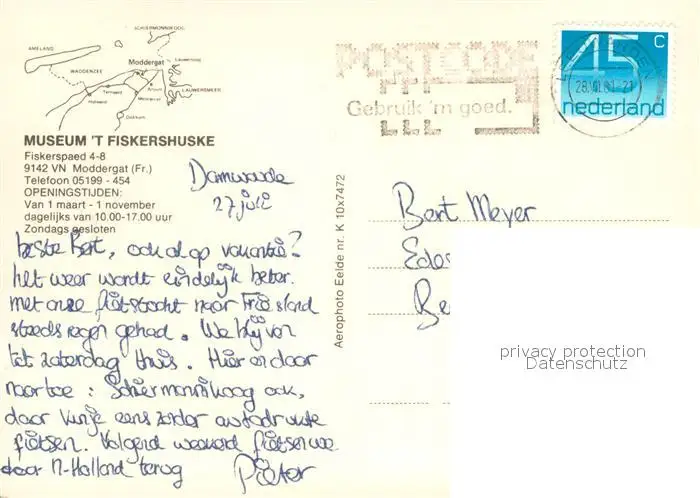 SCHIERMONNIKOOG
AMELAND
WADDENZEE
Moddergat
Lauwersoog
LAUWERSMEER
Ternaard
Anjum
Metslawier
Holwerd
Dokkum
MUSEUM 'T FISKERSHUSKE
Fiskerspaed 4-8
9142 VN Moddergat (Fr.)
Telefoon 05199 - 454
OPENINGSTIJDEN:
Van 1 maart - 1 november
dagelijks van 10.00-17.00 uur
Zondags gesloten
Damwoude
27 juli
beste Bert, ook al op vakantie?
het weer wordt eindelijk beter.
met onze fietstocht naar Friesland
steeds regen gehad. We blijven
tot zaterdag thuis. Hier en daar
naar toe: Schiermonnikoog ook,
daar kun je eens zonder autodrukte
fietsen. Volgend weekend fietsen we
door N-Holland terug
Pieter
Aerophoto Eelde nr. K 10x7472
POSTCODE
Gebruik 'm goed.
28.VII.81-21
45 c
nederland
Bert Meyer
Edes
Be
privacy protection
Datenschutz